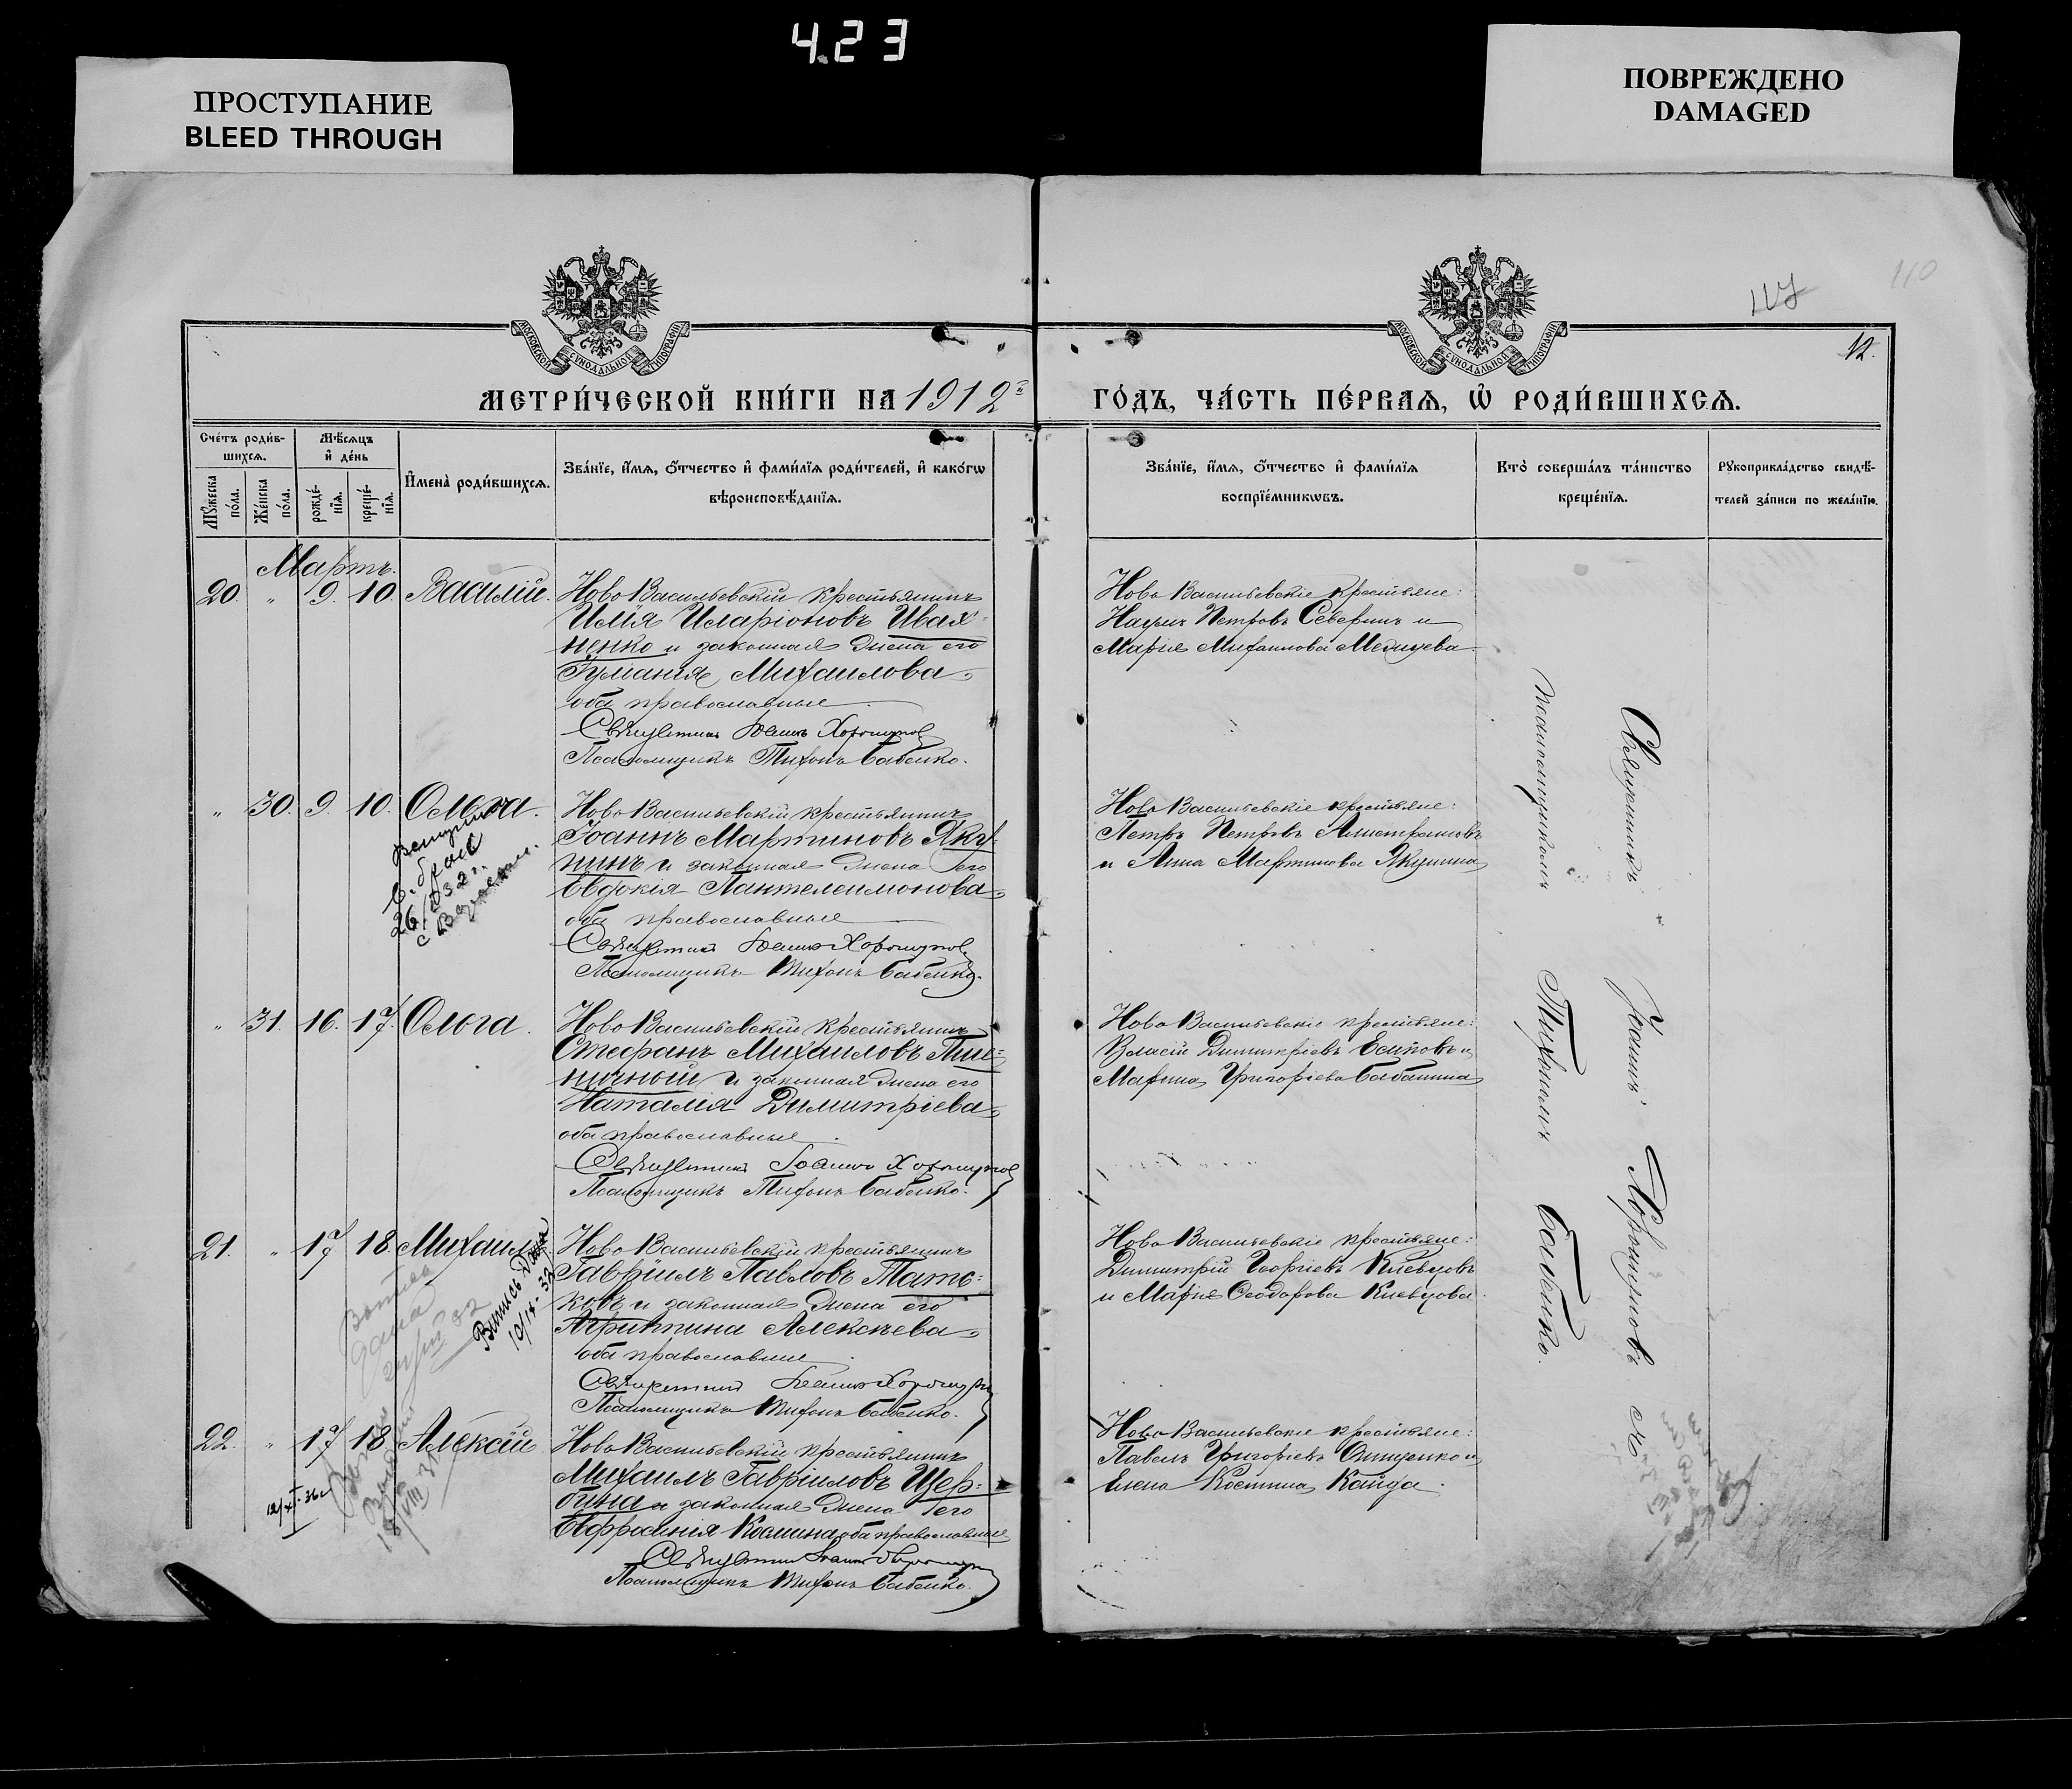 4.23
ПРОСТУПАНИЕ
BLEED THROUGH
ПОВРЕЖДЕНО
DAMAGED
110
12.
МОСКОВСКОЙ СѴНОДАЛЬНОЙ ТИПОГРАФІИ
МОСКОВСКОЙ СѴНОДАЛЬНОЙ ТИПОГРАФІИ
МЕТРИ́ЧЕСКОЙ КНИ́ГИ НА 1912
ГО́ДЪ, ЧА́СТЬ ПЕ́РВАЯ, Ѡ҆ РОДИ́ВШИХСЯ.
Сче́тъ роди́в-
шихся.
Мѣ́сяцъ
и҆ де́нь
Мꙋ́жеска по́ла.
Же́нска по́ла.
рожде́-
нїя.
креще́-
нїя.
И҆мена̀ роди́вшихся.
Зва́нїе, и҆́мя, ѻ҆́тчество и҆ фами́лїя роди́телей, и҆ како́гѡ
вѣроисповѣ́данїя.
Зва́нїе, и҆́мя, ѻ҆́тчество и҆ фами́лїя
воспрїе́мникѡвъ.
Кто̀ соверша́лъ та́инство
креще́нїя.
Рꙋкоприкла́дство свидѣ́-
телей за́писи по жела́нїю.
Мартъ.
20. " 9. 10. Василій.
Ново Васильевскій крестьянинъ
Илія Иларіоновъ Ивах-
ненко и законная жена его
Іуліанія Михаилова
оба православные
Священникъ Іоаннъ Хорошуновъ
Псаломщикъ Тихонъ Бабенко.
Ново Васильевскіе крестьяне:
Наумъ Петровъ Северинъ и
Марія Михаилова
" 30. 9. 10. Ольга.
26/ 32 г.
Ново Васильевскій крестьянинъ
Іоаннъ Мартиновъ Яку-
нинъ и законная жена его
Евдокія Пантелеимонова
оба православные
Священникъ Іоаннъ Хорошуновъ
Псаломщикъ Тихонъ Бабенко.
Ново Васильевскіе крестьяне:
Петръ Петровъ
и Анна Мартинова Якунина
" 31. 16. 17. Ольга.
Ново Васильевскій крестьянинъ
Стефанъ Михаиловъ Пше-
ничный и законная жена его
Наталія Димитріева
оба православные
Священникъ Іоаннъ Хорошуновъ
Псаломщикъ Тихонъ Бабенко.
Ново Васильевскіе крестьяне:
Власій Димитріевъ Есиповъ и
Марина Григоріева Бабанина
21. " 17 18 Михаилъ
Випись Дана
Ново Васильевскій крестьянинъ
Гавріилъ Павловъ Тать-
ковъ и законная жена его
Агриппина Алексѣева
оба православные
Священникъ Іоаннъ Хорошуновъ
Псаломщикъ Тихонъ Бабенко.
Ново Васильевскіе крестьяне:
Димитрій Георгіевъ Киевцовъ
и Марія Ѳеодорова Киевцова.
22. " 17 18 Алексій
Ново Васильевскій крестьянинъ
Михаилъ Гавріиловъ Щер-
бина и законная жена его
Евфросинія Космина оба православные
Священникъ Іоаннъ Хорошуновъ
Псаломщикъ Тихонъ Бабенко.
Ново Васильевскіе крестьяне:
Павелъ Григоріевъ Онищенко и
Елена Космина Кайда.
Священникъ Іоаннъ Хорошуновъ съ
псаломщикомъ Тихономъ Бабенко.